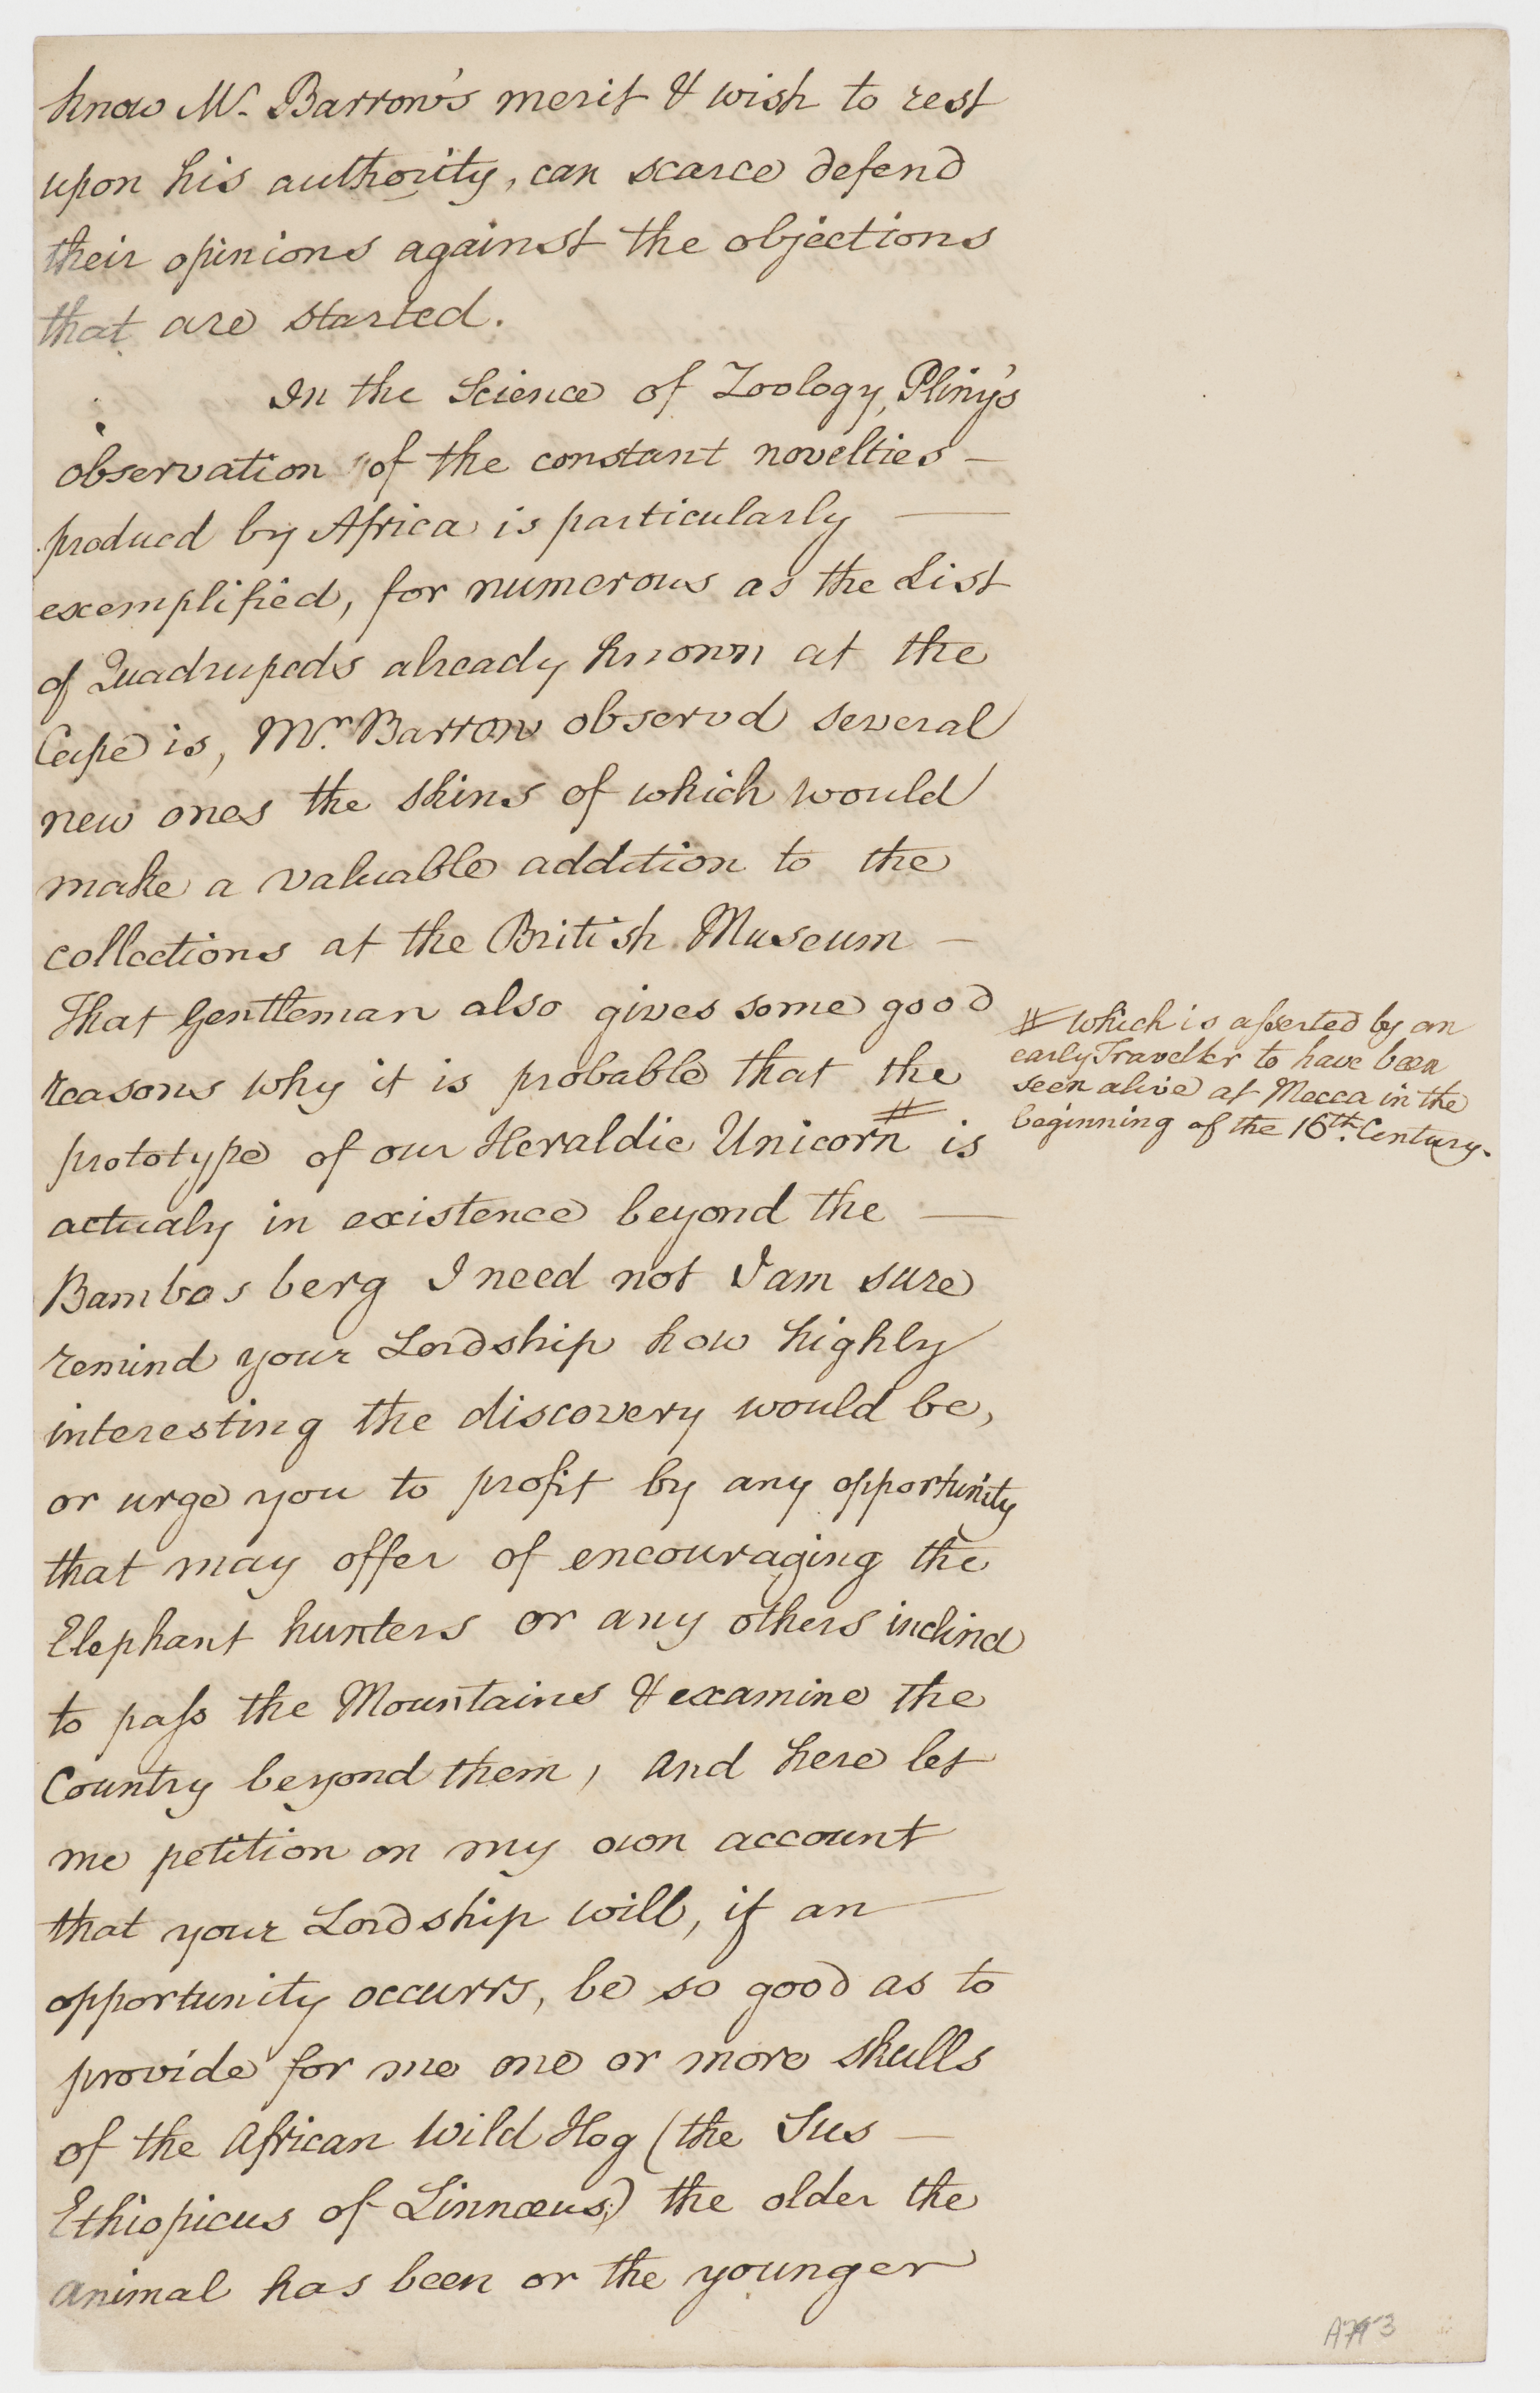 know Mr. Barrow's merit & wish to rest
upon his authority, can scarce defend
their opinions against the objections
that are started.
In the Science of Zoology, Pliny's
observation of the constant novelties —
producd by Africa is particularly —
exemplified, for numerous as the List
of Quadrupeds already known at the
Cape is, Mr. Barrow observd several
new ones the skins of which would
make a valuable addition to the
collections at the British Museum —
That Gentleman also gives some good
reasons why it is probable that the
prototype of our Heraldic Unicorn # is
actualy in existence beyond the —
Bambos berg I need not I am sure
remind your Lordship how highly
interesting the discovery would be,
or urge you to profit by any opportunity
that may offer of encouraging the
Elephant hunters or any others inclind
to paſs the Mountains & examine the
Country beyond them, and here let
me petition on my own account
that your Lordship will, if an —
opportunity occurrs, be so good as to
provide for me one or more skulls
of the African Wild Hog (the Sus —
Ethiopicus of Linnæus,) the older the
animal has been or the younger
# which is aſserted by an
early Traveller to have been
seen alive at Mecca in the
beginning of the 16th. Century.